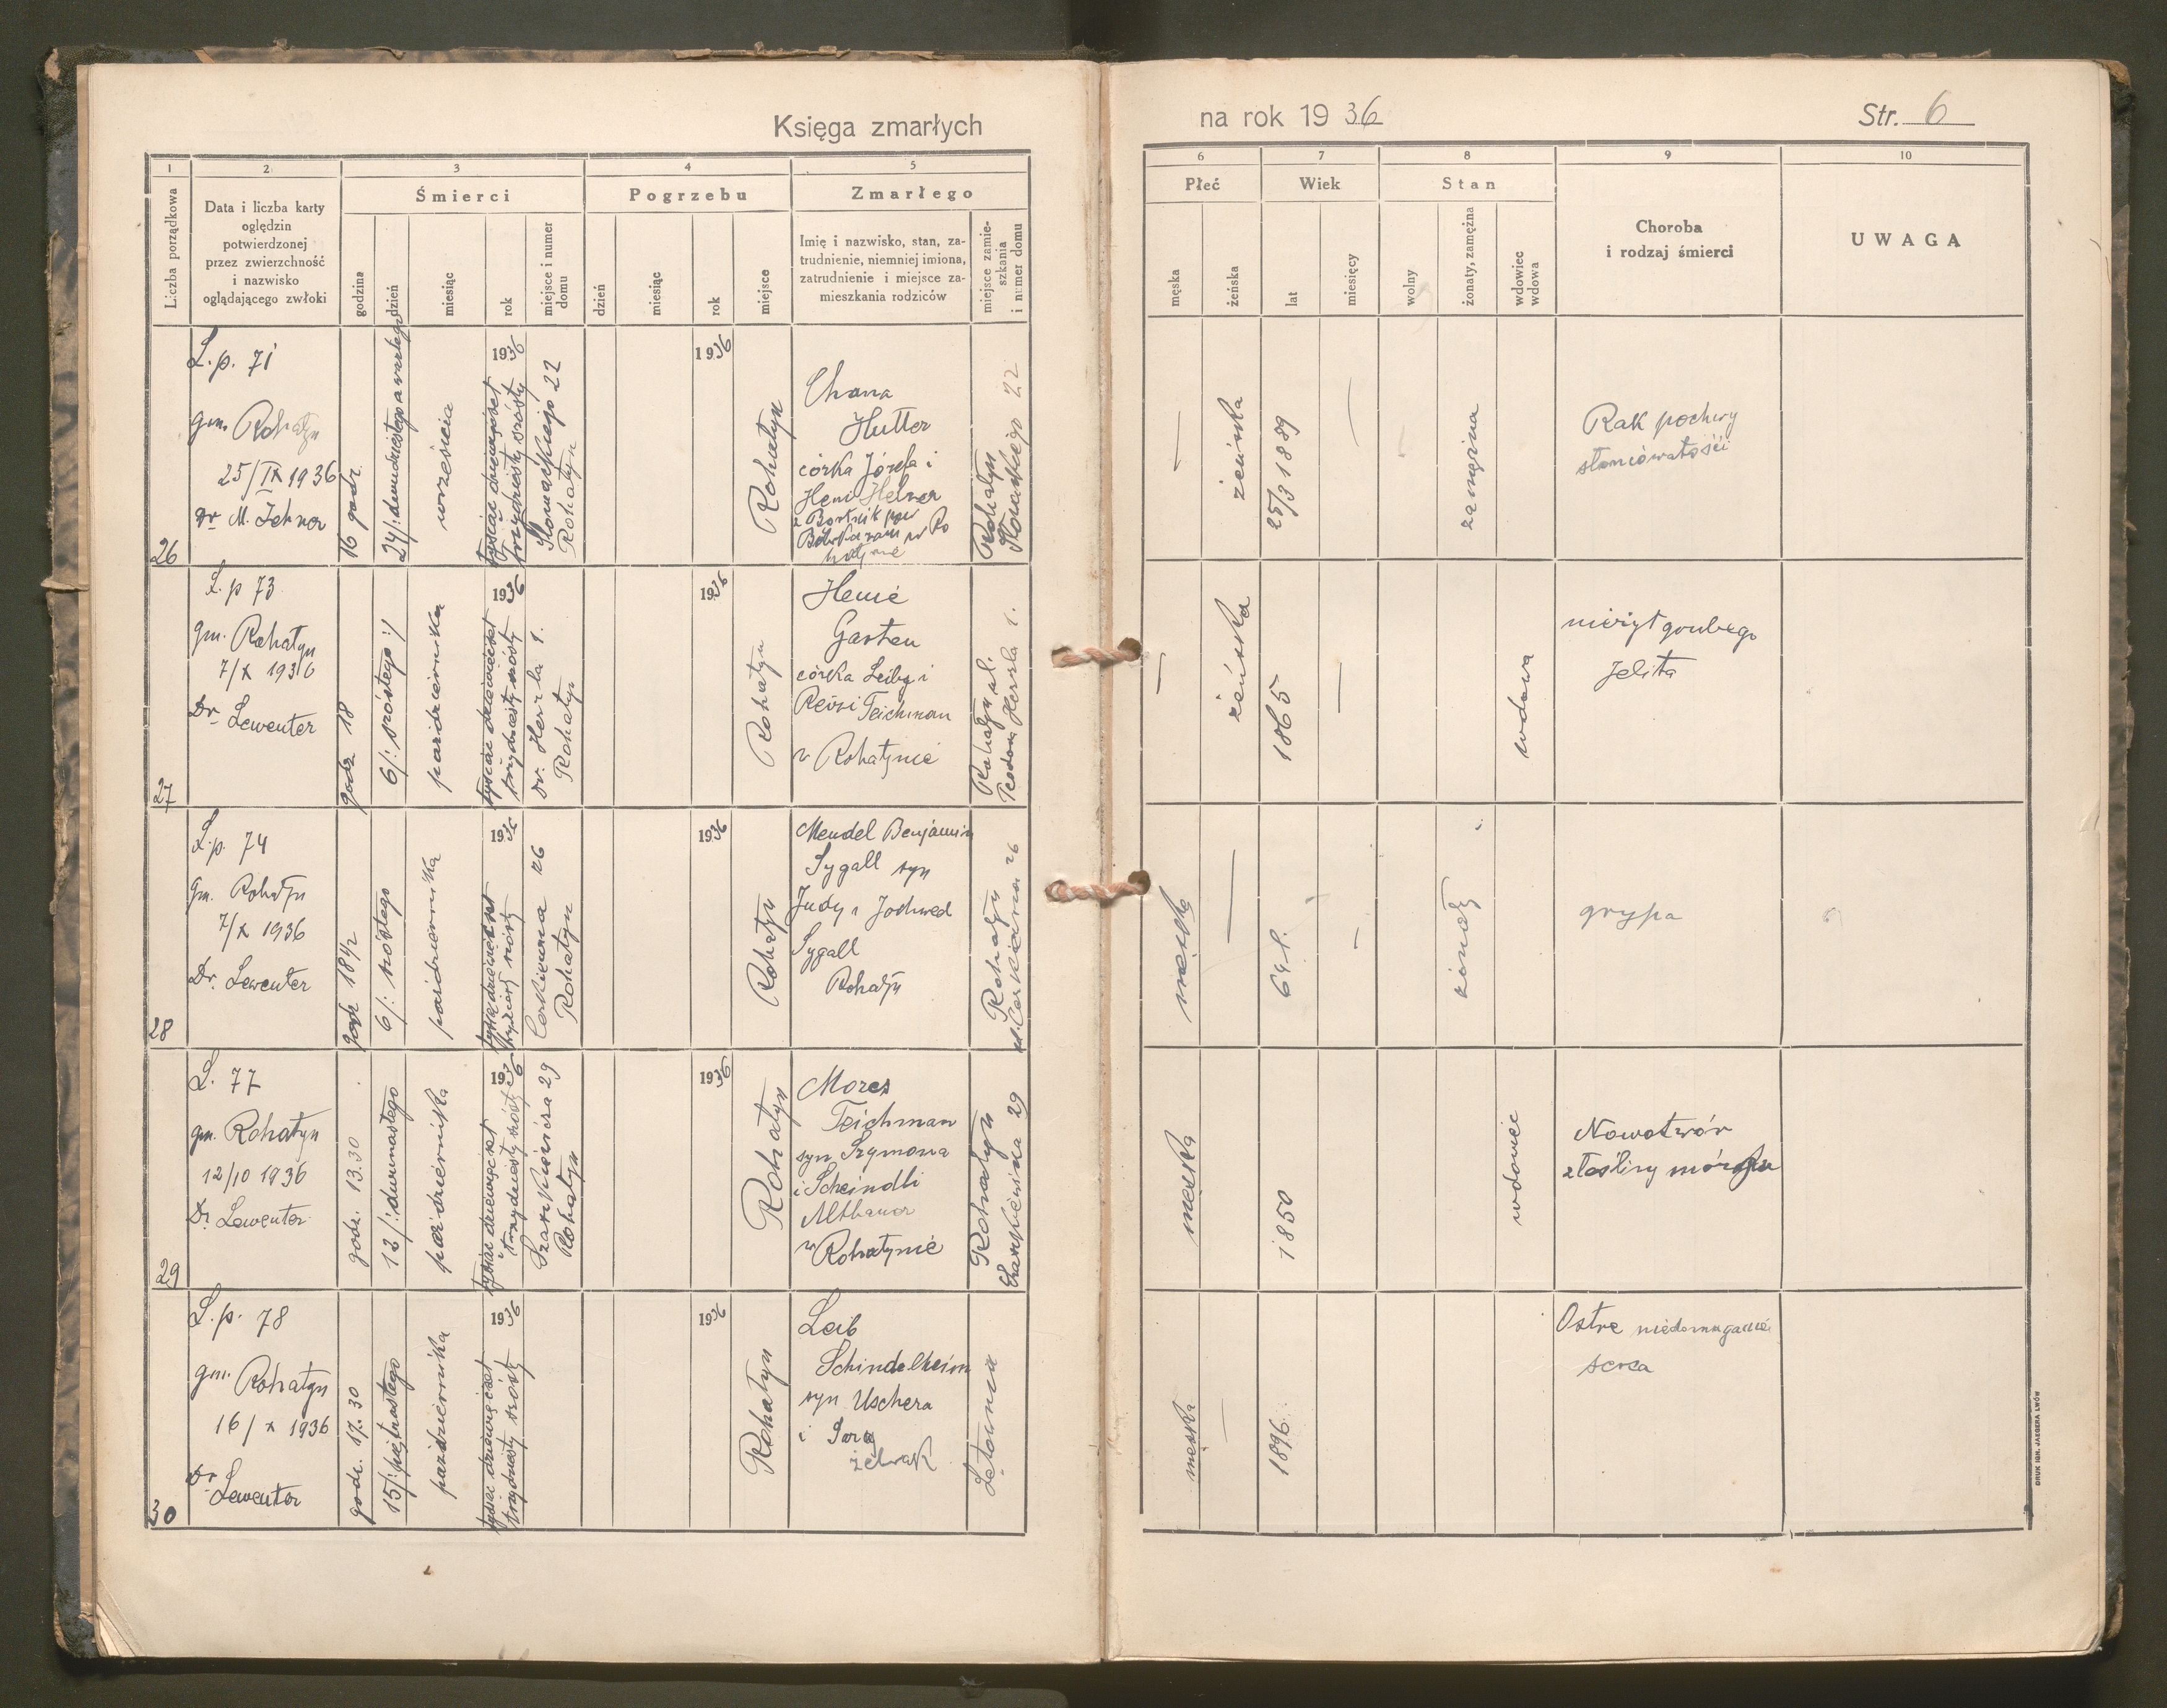 Księga zmarłych
na rok 1936
Str. 6
1 2 3 4 5 6 7 8 9 10
Liczba porządkowa
Data i liczba karty
oględzin
potwierdzonej
przez zwierzchność
i nazwisko
oglądającego zwłoki
Śmierci
godzina
dzień
miesiąc
rok
miejsce i numer
domu
Pogrzebu
dzień
miesiąc
rok
miejsce
Zmarłego
Imię i nazwisko, stan, za-
trudnienie, niemniej imiona,
zatrudnienie i miejsce za-
mieszkania rodziców
miejsce zamie-
szkania
i numer domu
Płeć
męska
żeńska
Wiek
lat
miesięcy
Stan
wolny
żonaty, zamężna
wdowiec
wdowa
Choroba
i rodzaj śmierci
UWAGA
26
L. p. 71
gm. Rohatyn
25/IX 1936
Dr M.
16 godz.
24/: dwudziestego czwartego
września
1936
tysiąc dziewięćset
trzydziesty szósty
Słowackiego 22
Rohatyn
1936
Rohatyn
Chana
Hutter
córka Józefa i
Heni
Rohatyn
Słowackiego 22
—
żeńska
25/3 1889
—
zamężna
Rak pochwy
27
L. p 73
gm. Rohatyn
7/X 1936
Dr Lewenter
godz 18
6/: szóstego :/
października
1936
tysiąc dziewięćset
trzydziesty szósty
Dr. Herzla 1.
Rohatyn
1936
Rohatyn
Henie
Garten
córka Leiby i
Reisi Teichman
w Rohatynie
Rohatyn ul.
Teodora Herzla 1.
—
żeńska
1865
—
wdowa
nieżyt grubego
jelita
28
L. p. 74
gm. Rohatyn
7/X 1936
Dr. Lewenter
godz 18 1/2
6/: szóstego
października
1936
trzydziesty szósty
Cerkiewna 26
Rohatyn
1936
Rohatyn
Mendel Benjamin
Sygall syn
Judy i Jochwed
Sygall
Rohatyn
Rohatyn
ul. Cerkiewna 26
męska
—
64 l.
—
żonaty
grypa
29
L. 77
gm. Rohatyn
12/10 1936
Dr Lewenter
godz. 13.30
12/: dwunastego
października
1936
tysiąc dziewięćset
trzydziesty szósty
29
Rohatyn
1936
Rohatyn
Mozes
Teichman
syn Szymona
i Scheindli
Althauer
w Rohatynie
Rohatyn
29
męska
1850
wdowiec
Nowotwór
złośliwy mózgu
30
L. p. 78
gm. Rohatyn
16/X 1936
Dr Lewenter
godz. 17.30
15/: piętnastego
października
1936
tysiąc dziewięćset
trzydziesty szósty
1936
Rohatyn
Leib
Schindelheim
syn Uschera
i Sary
Żelwak
męska
—
1896.
Ostre niedomaganie
serca
DRUK IGN. JAEGERA LWÓW